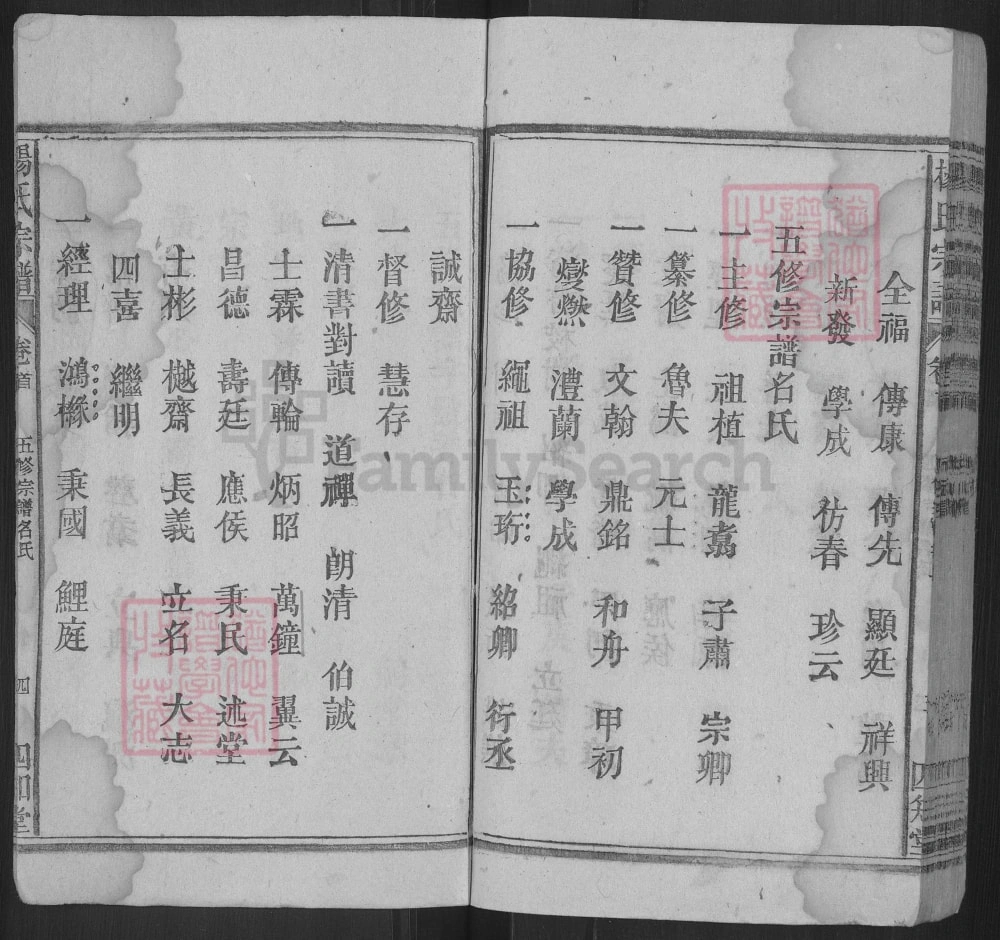 全福 傳康 傳先 顯廷 祥興
新發 學成 彷春 珍云
五修宗譜名氏
一主修 祖植 龍翥 子肅 宗卿
一纂修 魯夫 元士
一贊修 文翰 鼎銘 和舟 甲初
燮燃 澧蘭 學成
一協修 繩祖 玉珩 紹卿 衍丞
誠齋
一督修 慧存
一清書對讀 道禪 朗清 伯誠
士霖 傳輪 炳昭 萬鐘 翼云
昌德 壽廷 應侯 秉民 述堂
士彬 樾齋 長義 立名 大志
四喜 繼明
一經理 鴻橼 秉國 鯉庭
楊氏宗譜 卷首 五修宗譜名氏 四 四知堂
FamilySearch